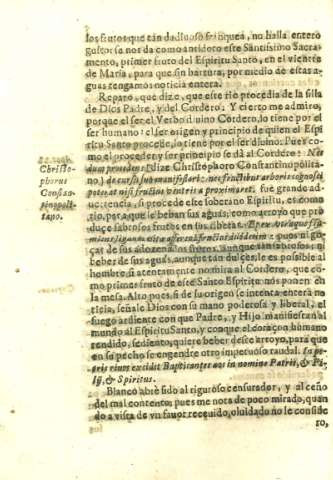 los frutos que tan dadiuoso franquea, no halla entero
gusto: sa nos da como antidoto este Santissimo Sacra-
mento, primer fruto del Espiritu Santo, en el vientre
de Maria, para que sin hartura, por medio de estas a-
guas tengamos noticia entera.
Reparo, que dize, que este rio procedia de la silla
de Dios Padre, y del Cordero. Y cierto me admiro,
porque el ser el Verbo diuino Cordero, lo tiene por el
ser humano: el ser origen y principio de quien el Espi
ritu Santo procede, lo tiene por el ser diuino. Pues co-
mo el proceder y ser principio se dà al Cordero?
Christo-
phorus
Constan-
tinopoli-
tano.
dum procedens (dize Christophoro Constantinopolita-
no) de
fuè grande ad-
uertencia, si procede este soberano Espiritu, es como
rio, para que le beban sus aguas; como arroyo que pro
duce sabrosos frutos en sus riberas.
pues si go-
çar de sus
beber de sus aguas, aunque tan dulçes, le es possible al
hombre si acentamente no mira al Cordero, que co-
mo primer fruto de este Santo Espiritu nos ponen en
la mesa. Alto pues, si de su origen se intenta enterá no
ticia, señale Dios con su mano poderosa y liberal, el
fuego ardiente con que Padre, y Hijo manifiestan al
mundo al Espiritu Santo, y conque el coraçon humano
rendido, sediento, quiere beber desse arroyo, para que
en su pecho se engendre otro impetuoso raudal.
Baptizantes eos in nomine Patris, & Fi-
lij, & Spiritus.
Blanco abrè sido al riguroso censurador, y al ceño
del mal contento, pues me nota de poco mirado, quan
do a vista de vn fauor recebido, oluidado no le conside
ro,